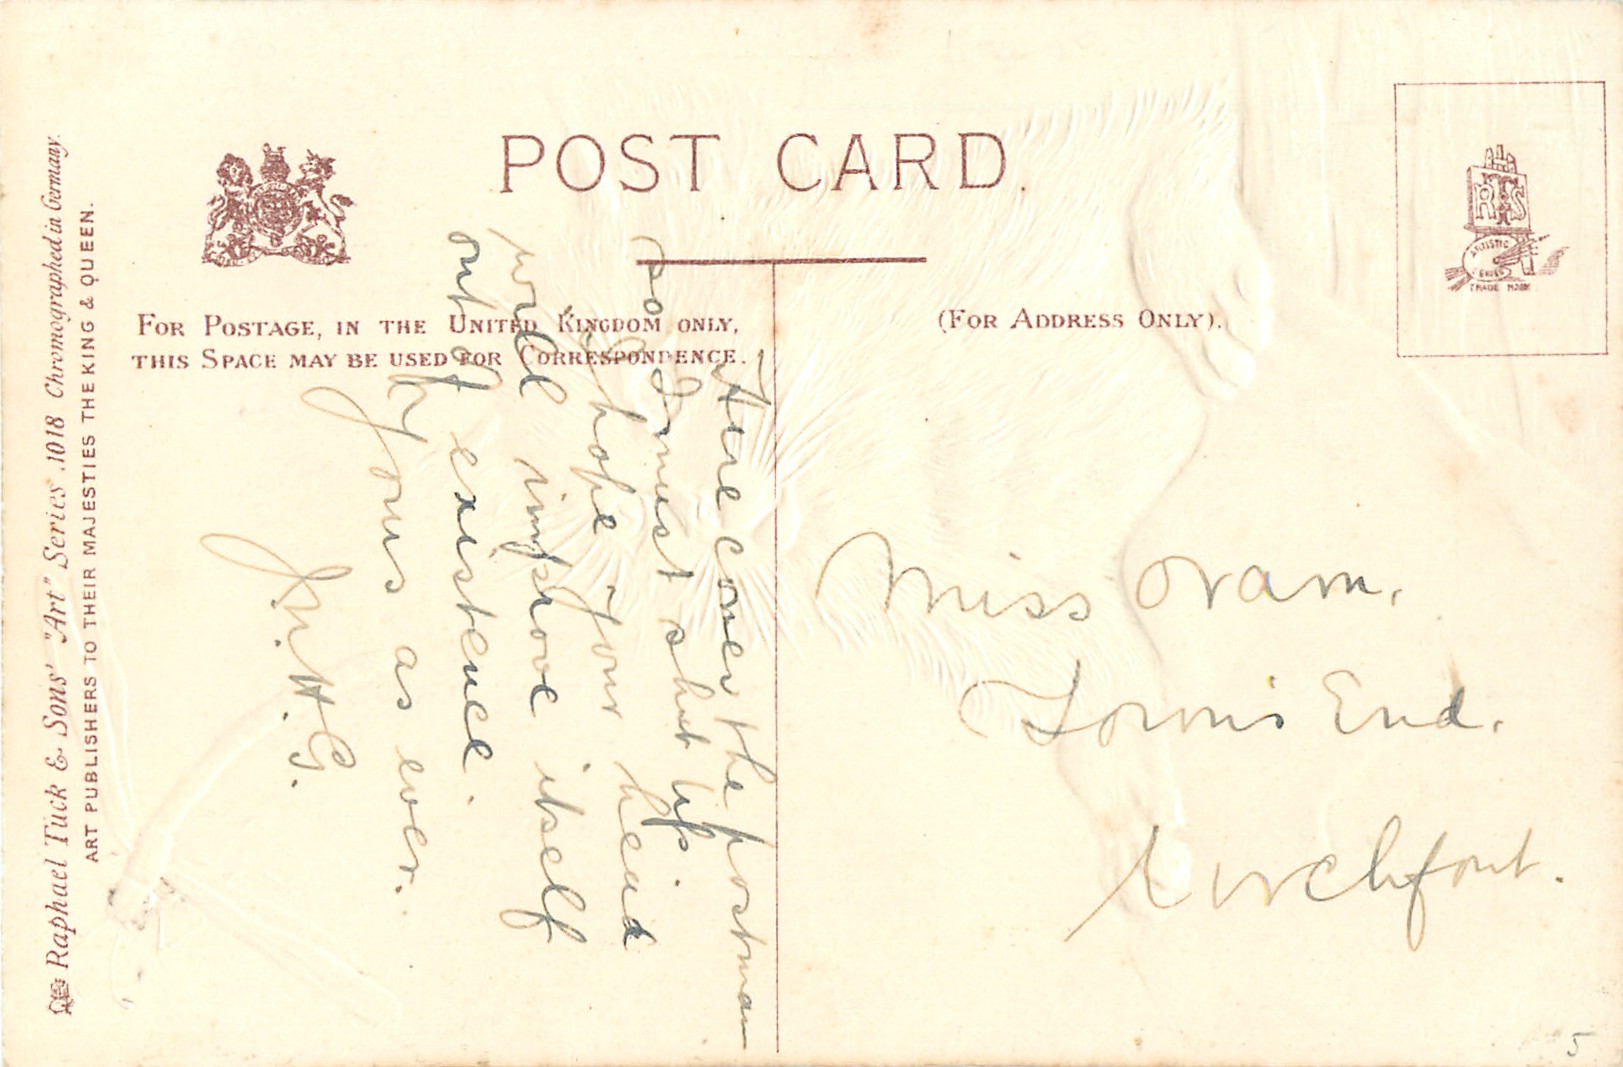 POST CARD.
FOR POSTAGE, IN THE UNITED KINGDOM ONLY,
THIS SPACE MAY BE USED FOR CORRESPONDENCE.
(FOR ADDRESS ONLY).
RTS
ARTISTIC
SERIES
TRADE MARK
Raphael Tuck & Sons' "Art" Series 1018 Chromographed in Germany.
ART PUBLISHERS TO THEIR MAJESTIES THE KING & QUEEN.
Here comes the postman
so I must shut up.
I hope your head
will improve itself
out of existence.
Yours as ever.
J.H.G.
Miss Oram.
Towns End.
Urchfont.
5